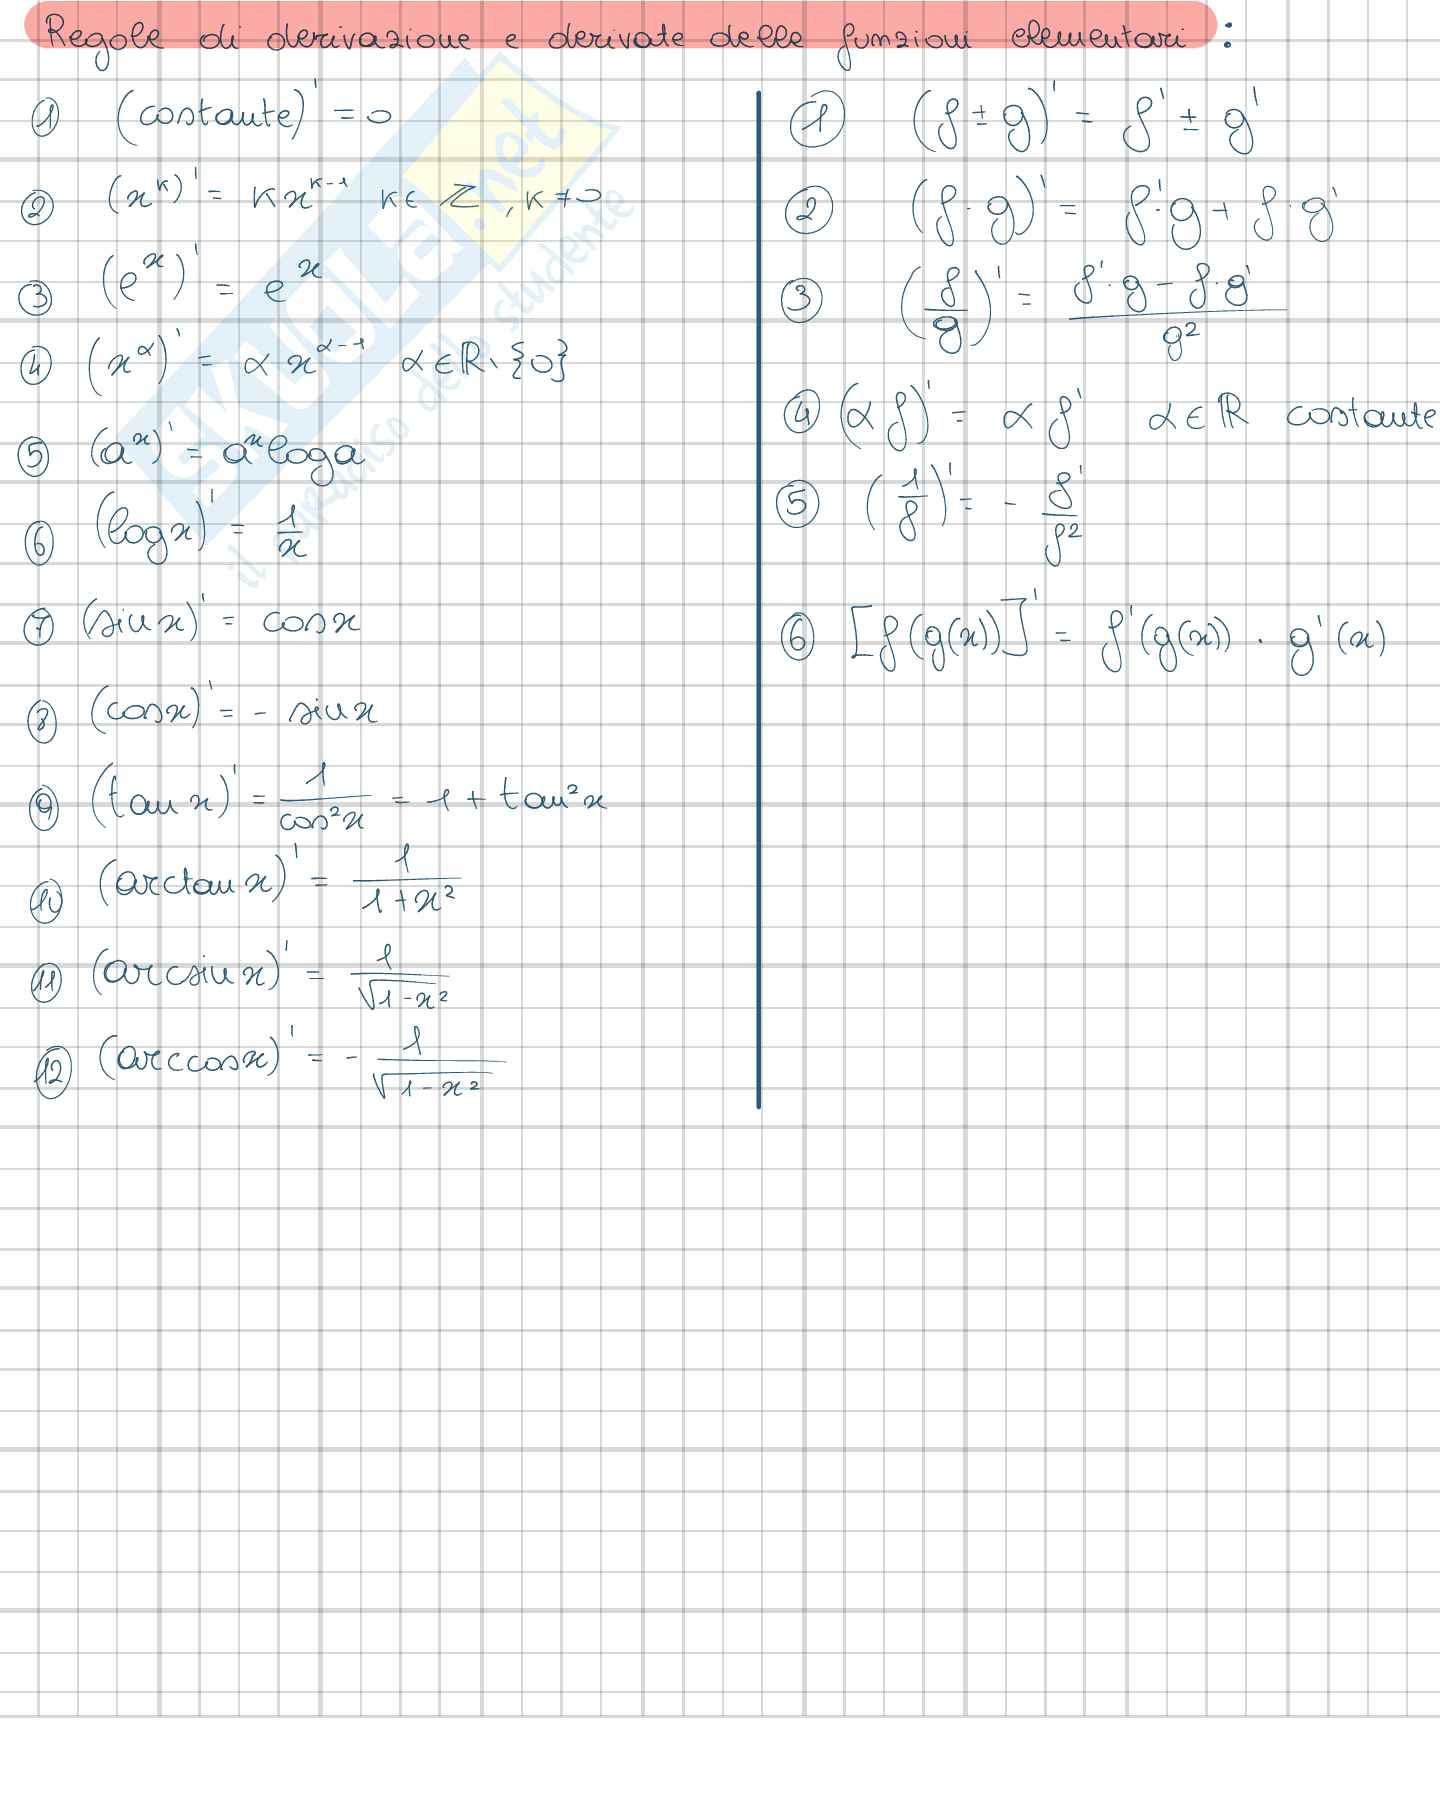 Regole di derivazione e derivate delle funzioni elementari :
① (costante)' = 0
② (x^k)' = k x^{k-1} k ∈ ℤ, k ≠ 0
③ (e^x)' = e^x
④ (x^α)' = α x^{α-1} α ∈ ℝ \ {0}
⑤ (a^x)' = a^x log a
⑥ (log x)' = 1/x
⑦ (sin x)' = cos x
⑧ (cos x)' = - sin x
⑨ (tan x)' = 1/cos²x = 1 + tan²x
⑩ (arctan x)' = 1/(1+x²)
⑪ (arcsin x)' = 1/√(1-x²)
⑫ (arccos x)' = - 1/√(1-x²)
① (f ± g)' = f' ± g'
② (f · g)' = f' · g + f · g'
③ (f/g)' = (f' · g - f · g')/g²
④ (α f)' = α f' α ∈ ℝ costante
⑤ (1/f)' = - f'/f²
⑥ [f(g(x))]' = f'(g(x)) · g'(x)
SKUOLA.net
il paradiso dello studente